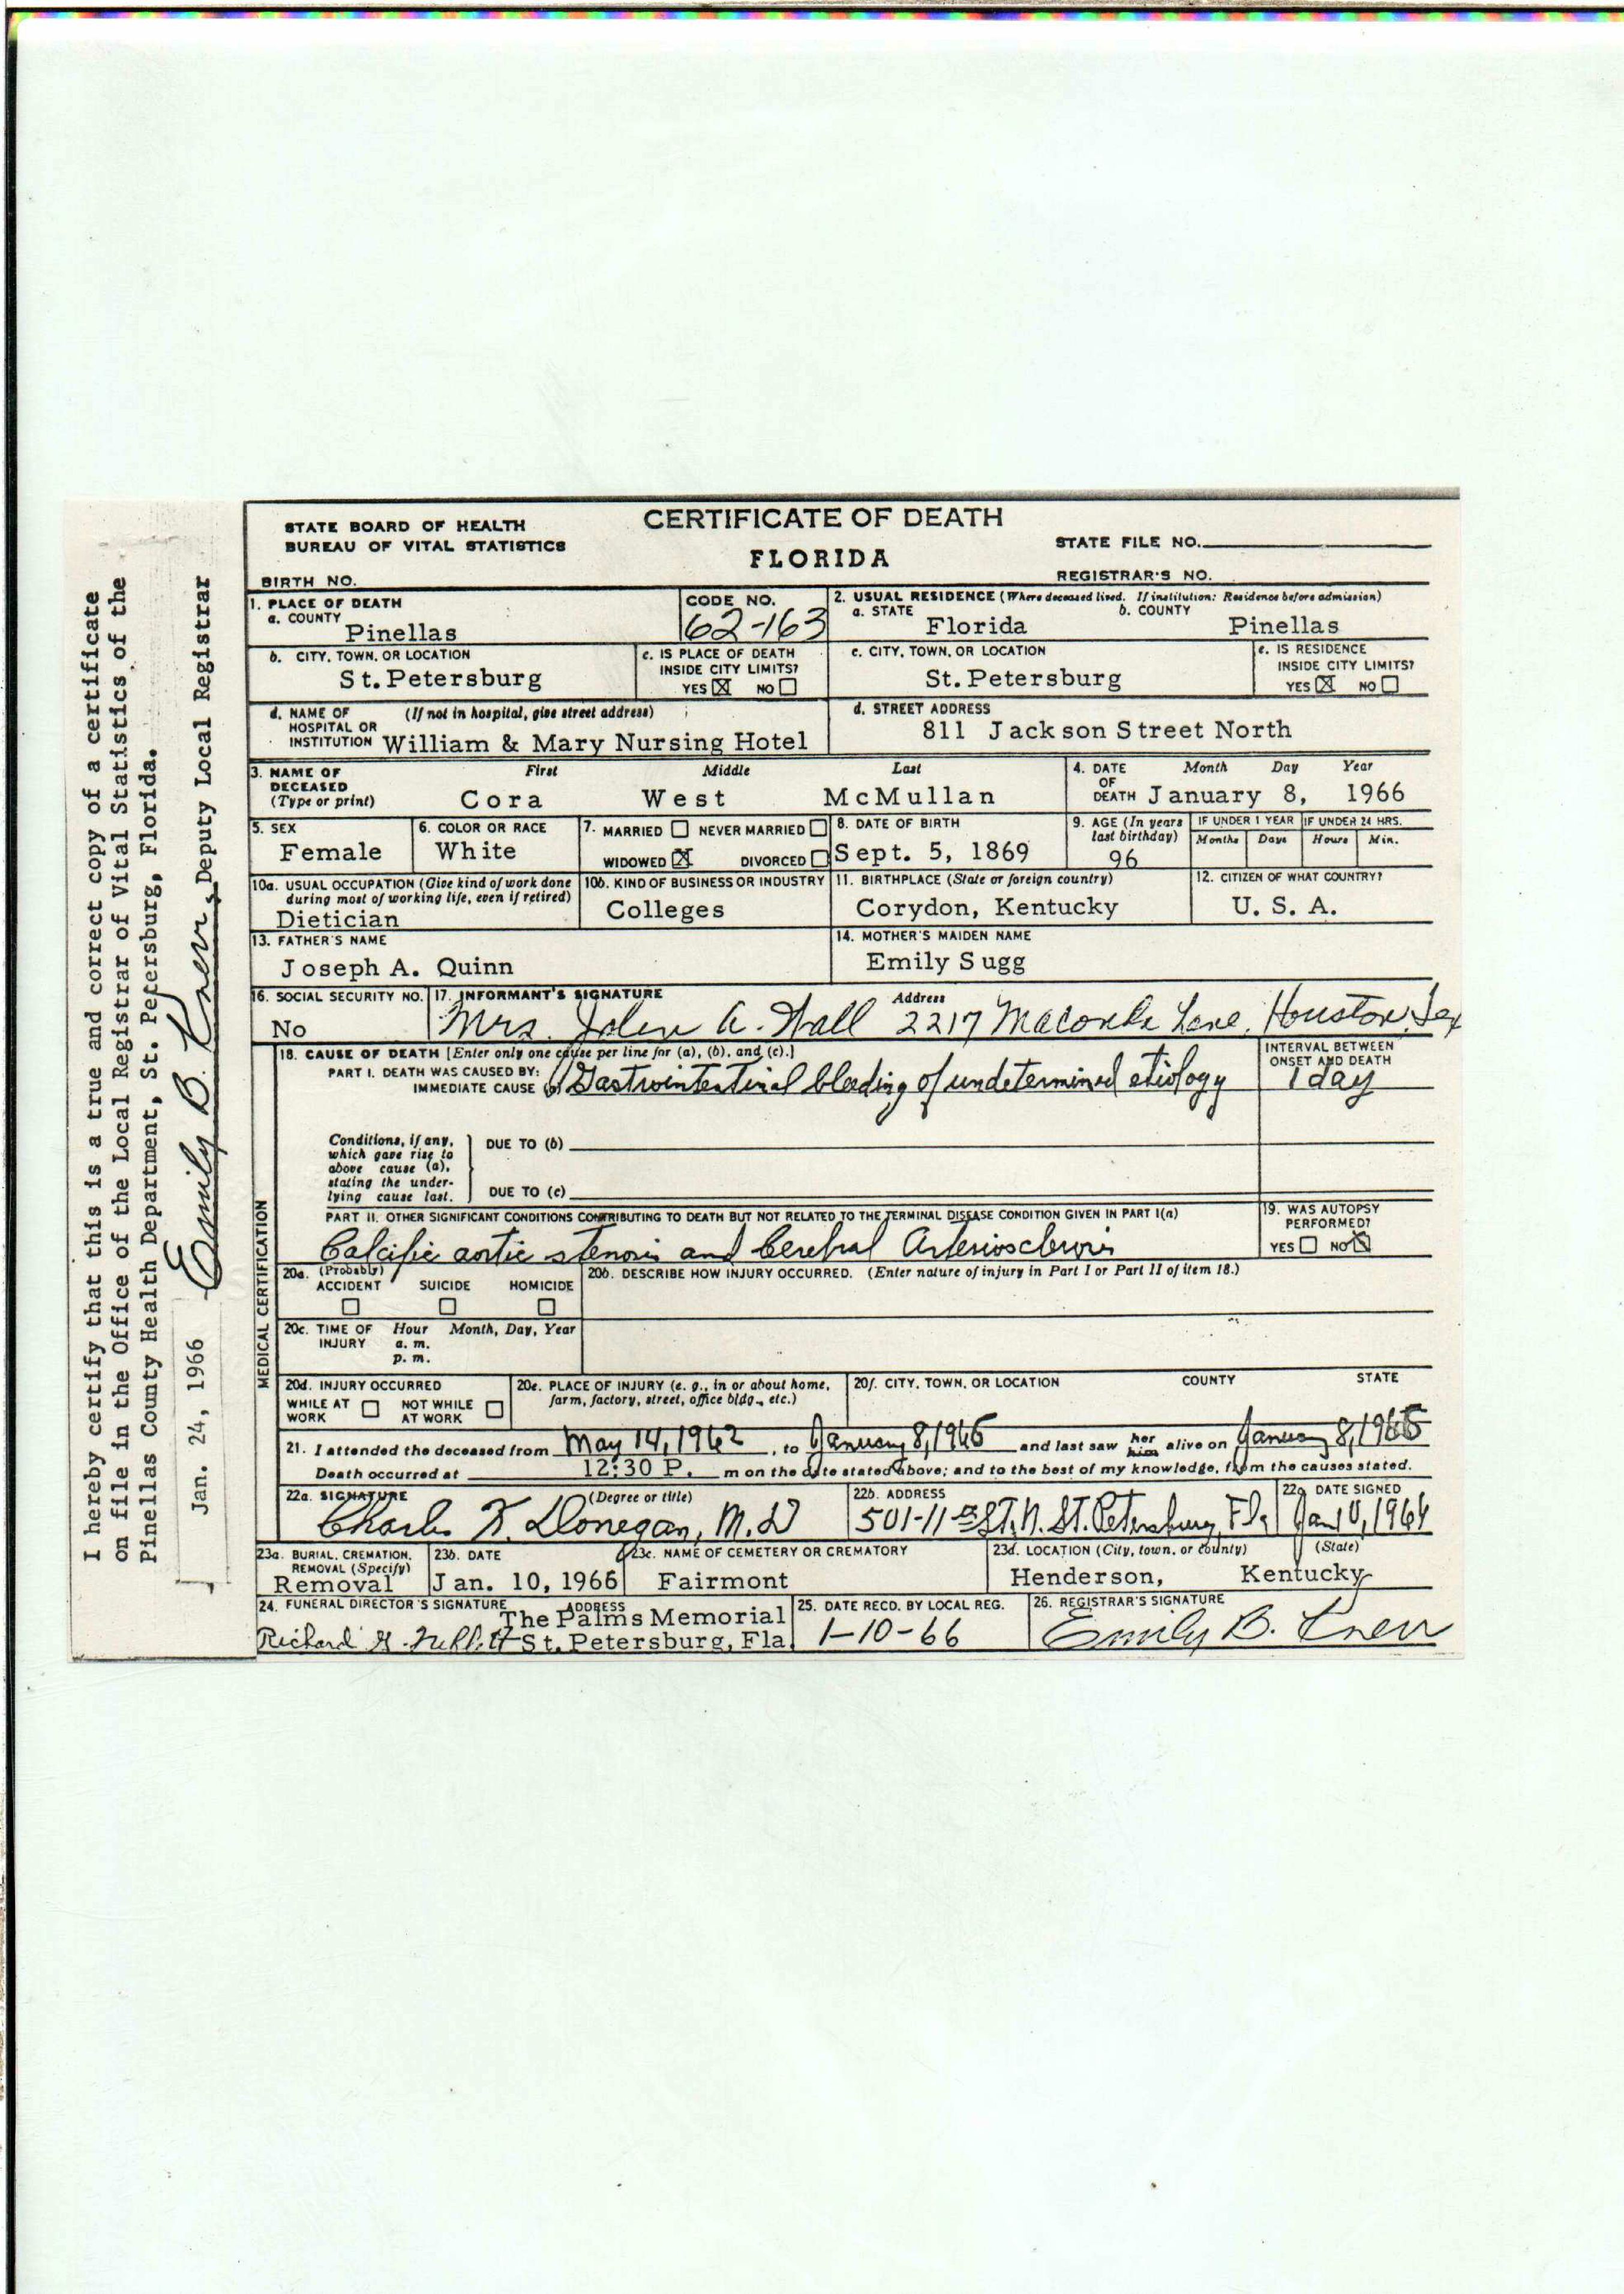 I hereby certify that this is a true and correct copy of a certificate
on file in the Office of the Local Registrar of Vital Statistics of the
Pinellas County Health Department, St. Petersburg, Florida.
Jan. 24, 1966 Emily B. , Deputy Local Registrar
CERTIFICATE OF DEATH
STATE BOARD OF HEALTH
BUREAU OF VITAL STATISTICS
FLORIDA
STATE FILE NO.
BIRTH NO.
REGISTRAR'S NO.
1. PLACE OF DEATH
a. COUNTY
Pinellas
CODE NO.
62-163
2. USUAL RESIDENCE (Where deceased lived. If institution: Residence before admission)
a. STATE b. COUNTY
Florida Pinellas
b. CITY, TOWN, OR LOCATION
St. Petersburg
c. IS PLACE OF DEATH
INSIDE CITY LIMITS?
YES ☒ NO ☐
c. CITY, TOWN, OR LOCATION
St. Petersburg
e. IS RESIDENCE
INSIDE CITY LIMITS?
YES ☒ NO ☐
d. NAME OF (If not in hospital, give street address)
HOSPITAL OR
INSTITUTION William & Mary Nursing Hotel
d. STREET ADDRESS
811 Jackson Street North
3. NAME OF First Middle Last
DECEASED
(Type or print) Cora West McMullan
4. DATE Month Day Year
OF
DEATH January 8, 1966
5. SEX
Female
6. COLOR OR RACE
White
7. MARRIED ☐ NEVER MARRIED ☐
WIDOWED ☒ DIVORCED ☐
8. DATE OF BIRTH
Sept. 5, 1869
9. AGE (In years
last birthday)
96
IF UNDER 1 YEAR IF UNDER 24 HRS.
Months Days Hours Min.
10a. USUAL OCCUPATION (Give kind of work done
during most of working life, even if retired)
Dietician
10b. KIND OF BUSINESS OR INDUSTRY
Colleges
11. BIRTHPLACE (State or foreign country)
Corydon, Kentucky
12. CITIZEN OF WHAT COUNTRY?
U. S. A.
13. FATHER'S NAME
Joseph A. Quinn
14. MOTHER'S MAIDEN NAME
Emily Sugg
16. SOCIAL SECURITY NO.
No
17. INFORMANT'S SIGNATURE Address
Mrs. John A. Hall 2217 Lane, Houston, Tex
MEDICAL CERTIFICATION
18. CAUSE OF DEATH [Enter only one cause per line for (a), (b), and (c).]
PART I. DEATH WAS CAUSED BY:
IMMEDIATE CAUSE (a) Gastrointestinal bleeding of undetermined etiology
INTERVAL BETWEEN
ONSET AND DEATH
1 day
Conditions, if any,
which gave rise to
above cause (a),
stating the under-
lying cause last.
DUE TO (b)
DUE TO (c)
PART II. OTHER SIGNIFICANT CONDITIONS CONTRIBUTING TO DEATH BUT NOT RELATED TO THE TERMINAL DISEASE CONDITION GIVEN IN PART I(a)
Calcific aortic stenosis and Cerebral Arteriosclerosis
19. WAS AUTOPSY
PERFORMED?
YES ☐ NO ☒
20a. (Probably)
ACCIDENT SUICIDE HOMICIDE
☐ ☐ ☐
20b. DESCRIBE HOW INJURY OCCURRED. (Enter nature of injury in Part I or Part II of item 18.)
20c. TIME OF Hour Month, Day, Year
INJURY a. m.
p. m.
20d. INJURY OCCURRED
WHILE AT ☐ NOT WHILE ☐
WORK AT WORK
20e. PLACE OF INJURY (e. g., in or about home,
farm, factory, street, office bldg., etc.)
20f. CITY, TOWN, OR LOCATION COUNTY STATE
21. I attended the deceased from May 14, 1962, to January 8, 1966 and last saw her him alive on January 8, 1966
Death occurred at 12:30 P. m on the date stated above; and to the best of my knowledge, from the causes stated.
22a. SIGNATURE (Degree or title)
Charles K. Donegan, M.D
22b. ADDRESS
501-11 St. N. St. Petersburg, Fla
22c. DATE SIGNED
Jan 10, 1966
23a. BURIAL, CREMATION,
REMOVAL (Specify)
Removal
23b. DATE
Jan. 10, 1966
23c. NAME OF CEMETERY OR CREMATORY
Fairmont
23d. LOCATION (City, town, or county) (State)
Henderson, Kentucky
24. FUNERAL DIRECTOR'S SIGNATURE ADDRESS
The Palms Memorial
Richard St. Petersburg, Fla.
25. DATE RECD. BY LOCAL REG.
1-10-66
26. REGISTRAR'S SIGNATURE
Emily B.